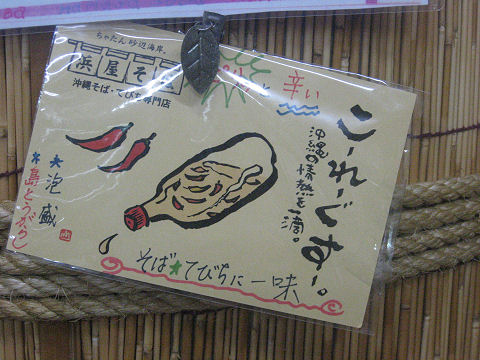 ちゃたん砂辺海岸。
浜屋そば
沖縄そば・てびち専門店
辛い
こーれーぐすー。
沖縄の情熱を一滴。
★泡盛
★島とうがらし
そば★てびちに一味